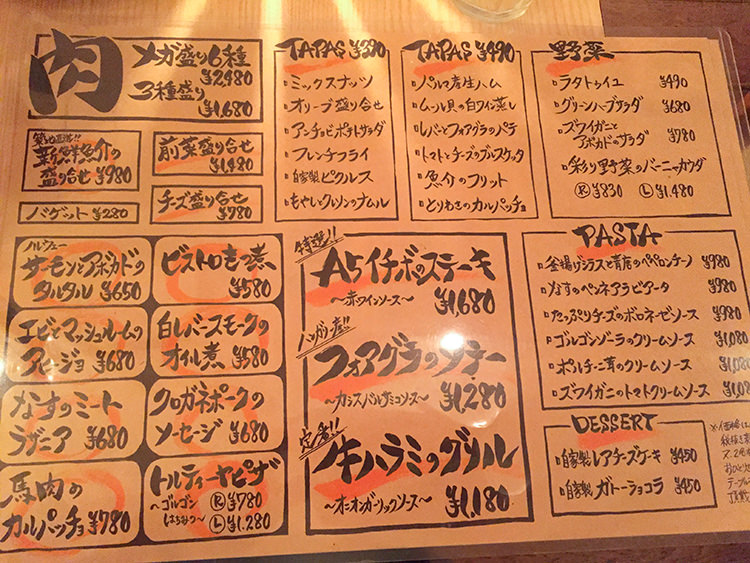 肉
メガ盛り6種
¥2,480
3種盛り
¥1,680
築地直送!!
新鮮魚介の
盛り合せ ¥980
前菜盛り合せ
¥1,480
バゲット ¥280
チーズ盛り合せ
¥780
TAPAS ¥390
ミックスナッツ
オリーブ盛り合せ
アンチョビポテトサラダ
フレンチフライ
自家製ピクルス
もやしとクレソンのナムル
TAPAS ¥490
パルマ産生ハム
ムール貝の白ワイン蒸し
レバーとフォアグラのパテ
トマトとチーズのブルスケッタ
魚介のフリット
とりわさのカルパッチョ
野菜
ラタトゥイユ ¥490
グリーンハーブサラダ ¥680
ズワイガニと
アボカドのサラダ ¥780
彩り野菜のバーニャカウダ
Ⓡ ¥830 Ⓛ ¥1,480
ノルウェー
サーモンとアボカドの
タルタル ¥650
ビストロもつ煮
¥580
エビとマッシュルームの
アヒージョ ¥680
白レバースモークの
オイル煮 ¥580
なすのミート
ラザニア ¥680
クロガネポークの
ソーセージ ¥680
馬肉の
カルパッチョ ¥780
トルティーヤピザ
〜ゴルゴン
はちみつ〜
Ⓡ ¥780
Ⓛ ¥1,280
特選!!
A5イチボのステーキ
〜赤ワインソース〜 ¥1,680
ハンガリー産!!
フォアグラのソテー
〜カシスバルサミコソース〜 ¥1,280
定番!!
牛ハラミのグリル
〜オニオンガーリックソース〜 ¥1,180
PASTA
釜揚げシラスと青唐のペペロンチーノ ¥980
なすのペンネアラビアータ ¥980
たっぷりチーズのボロネーゼソース ¥980
ゴルゴンゾーラのクリームソース ¥1,080
ポルチーニ茸のクリームソース ¥1,080
ズワイガニのトマトクリームソース ¥1,08
DESSERT
自家製レアチーズケーキ ¥450
自家製ガトーショコラ ¥450
※価格は
税抜き
おひとり
テーブル